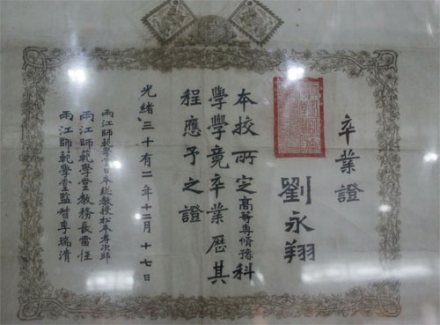 卒業證
劉永翔
本校所定高等專脩豫科
學學竟卒業歷其
程應予之證
光緒三十有二年十二月十七日
兩江師範學堂日本總教授松本孝次郎
兩江師範學堂教務長雷恆
兩江師範學堂監督李瑞清